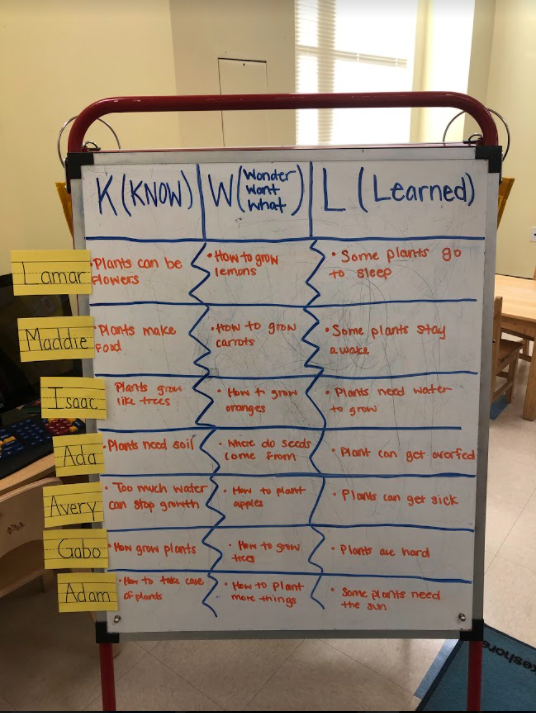 K (KNOW)
W (Wonder
Want
What)
L (Learned)
Lamar
• Plants can be
flowers
• How to grow
lemons
• Some plants go
to sleep
Maddie
• Plants make
food
• How to grow
carrots
• Some plants stay
awake
Isaac
Plants grow
like trees
• How to grow
oranges
• Plants need water
to grow
Ada
• Plants need soil
• Where do seeds
come from
• Plant can get overfed
Avery
• Too much water
can stop growth
• How to plant
apples
• Plants can get sick
Gabo
• How grow plants
• How to grow
trees
• Plants are hard
Adam
• How to take care
of plants
• How to plant
more things
• Some plants need
the sun